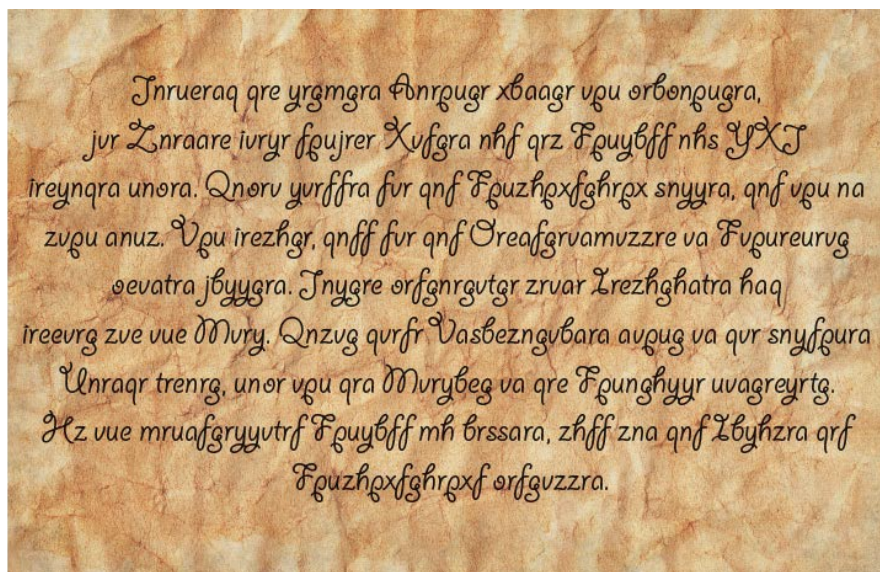 Jnrueraq qre yrgmgra Anrpugr xbaagr vpu orbonpugra,
jvr Znraare ivryr fpujrer Xvfgra nhf qrz Fpuybff nhs YXJ
ireynqra unora. Qnorv yvrffra fvr qnf Fpuzhpxfghrpx snyyra, qnf vpu na
zvpu anuz. Vpu irezhgr, qnff fvr qnf Oreafgrvamvzzre va Fvpureurvg
oevatra jbyygra. Jnygre orfgnrgvtgr zrvar Irezhghatra haq
ireevrg zve vue Mvry. Qnzvg qvrfr Vasbezngvbara avpug va qvr snyfpura
Unraqr trenrg, unor vpu qra Mvrybeg va qre Fpunghyyr uvagreyrtg.
Hz vue mruafgryyvtrf Fpuybff mh brssara, zhff zna qnf Ibyhzra qrf
Fpuzhpxfghrpxf orfgvzzra.